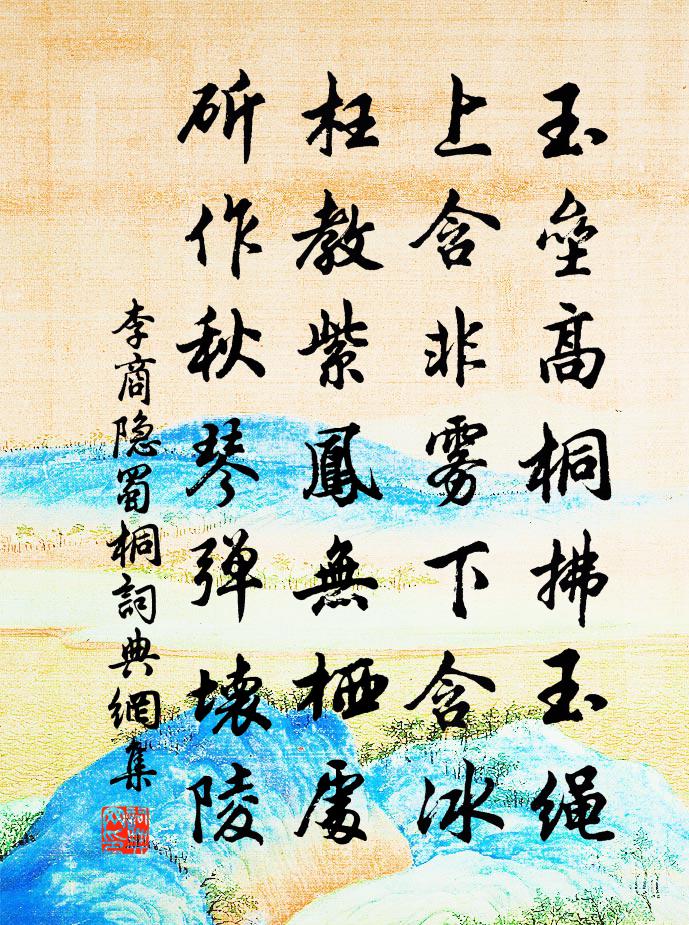 玉壘高桐拂玉绳
上含非雾下含冰
枉教紫鳳無栖處
斫作秋琴弹壞陵
李商隐蜀桐詞典網集